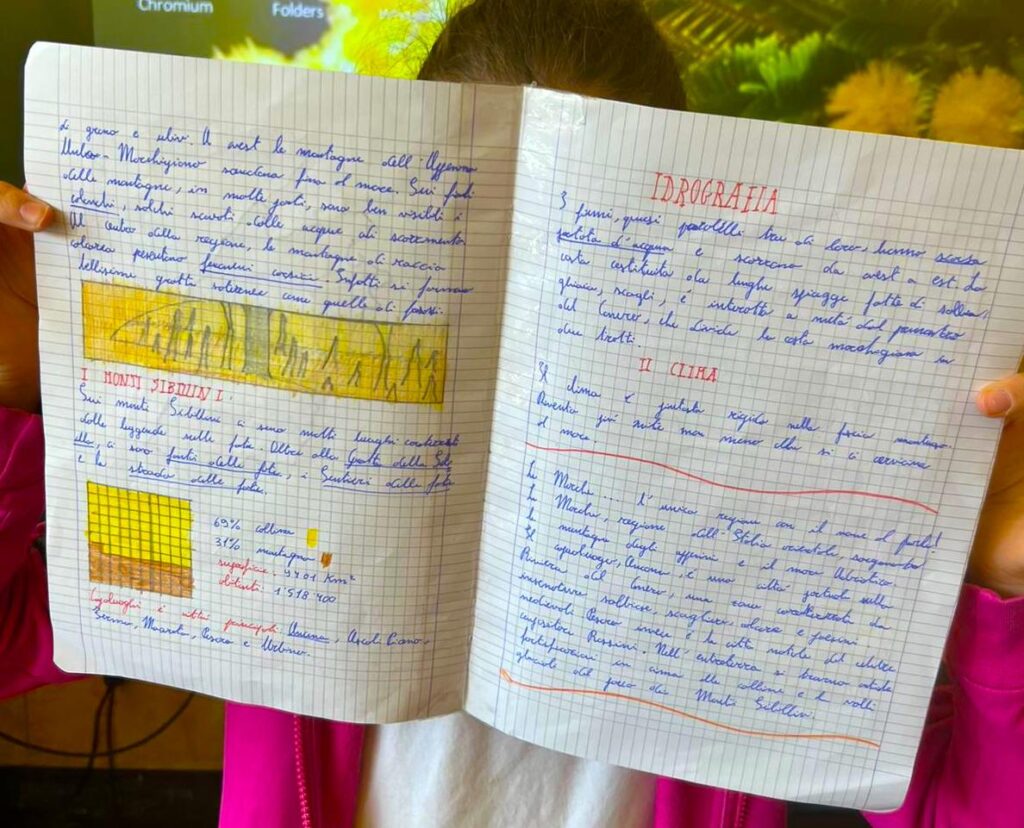 Chromium
Folders
di grano e ulivi. A ovest le montagne dell'Appennino
Umbro-Marchigiano scendono fino al mare. Sui fianchi
delle montagne, in molte parti, sono ben visibili i
calanchi, solchi scavati dalle acque di scorrimento.
Al centro della regione, le montagne di roccia
calcarea presentano fenomeni carsici. Infatti si formano
bellissime grotte sotterranee come quelle di Frasassi.
I MONTI SIBILLINI
Sui monti Sibillini ci sono molti luoghi caratterizzati
dalle leggende sulle fate. Oltre alla Grotta della Sibilla,
ci sono fonti delle fate, i Sentieri delle fate
e la strada delle fate.
69% collina
31% montagna
superficie: 9401 Km²
abitanti: 1'518'400
Capoluoghi e città principali: Ancona, Ascoli Piceno,
Fermo, Macerata, Pesaro e Urbino.
IDROGRAFIA
I fiumi, quasi paralleli tra di loro, hanno scarsa
portata d'acqua e scorrono da ovest a est. La
costa costituita da lunghe spiagge fatte di sabbia,
ghiaia, scogli, è interrotta a metà dal promontorio
del Conero, che divide la costa marchigiana in
due tratti.
IL CLIMA
Il clima è piuttosto rigido nella fascia montana.
Diventa più mite man mano che si ci avvicina
al mare.
Le Marche... l'unica regione con il nome al plurale!
Le Marche, regione dell'Italia orientale, sorgono tra
le montagne degli appennini e il mare Adriatico.
Il capoluogo, Ancona, è una città portuale sulla
Riviera del Conero, una zona caratterizzata da
insenature sabbiose, scogliere calcaree e paesini
medievali. Pesaro invece è la città natale del celebre
compositore Rossini. Nell'entroterra si trovano antiche
fortificazioni in cima alle colline e le valli
glaciali del parco dei Monti Sibillini.